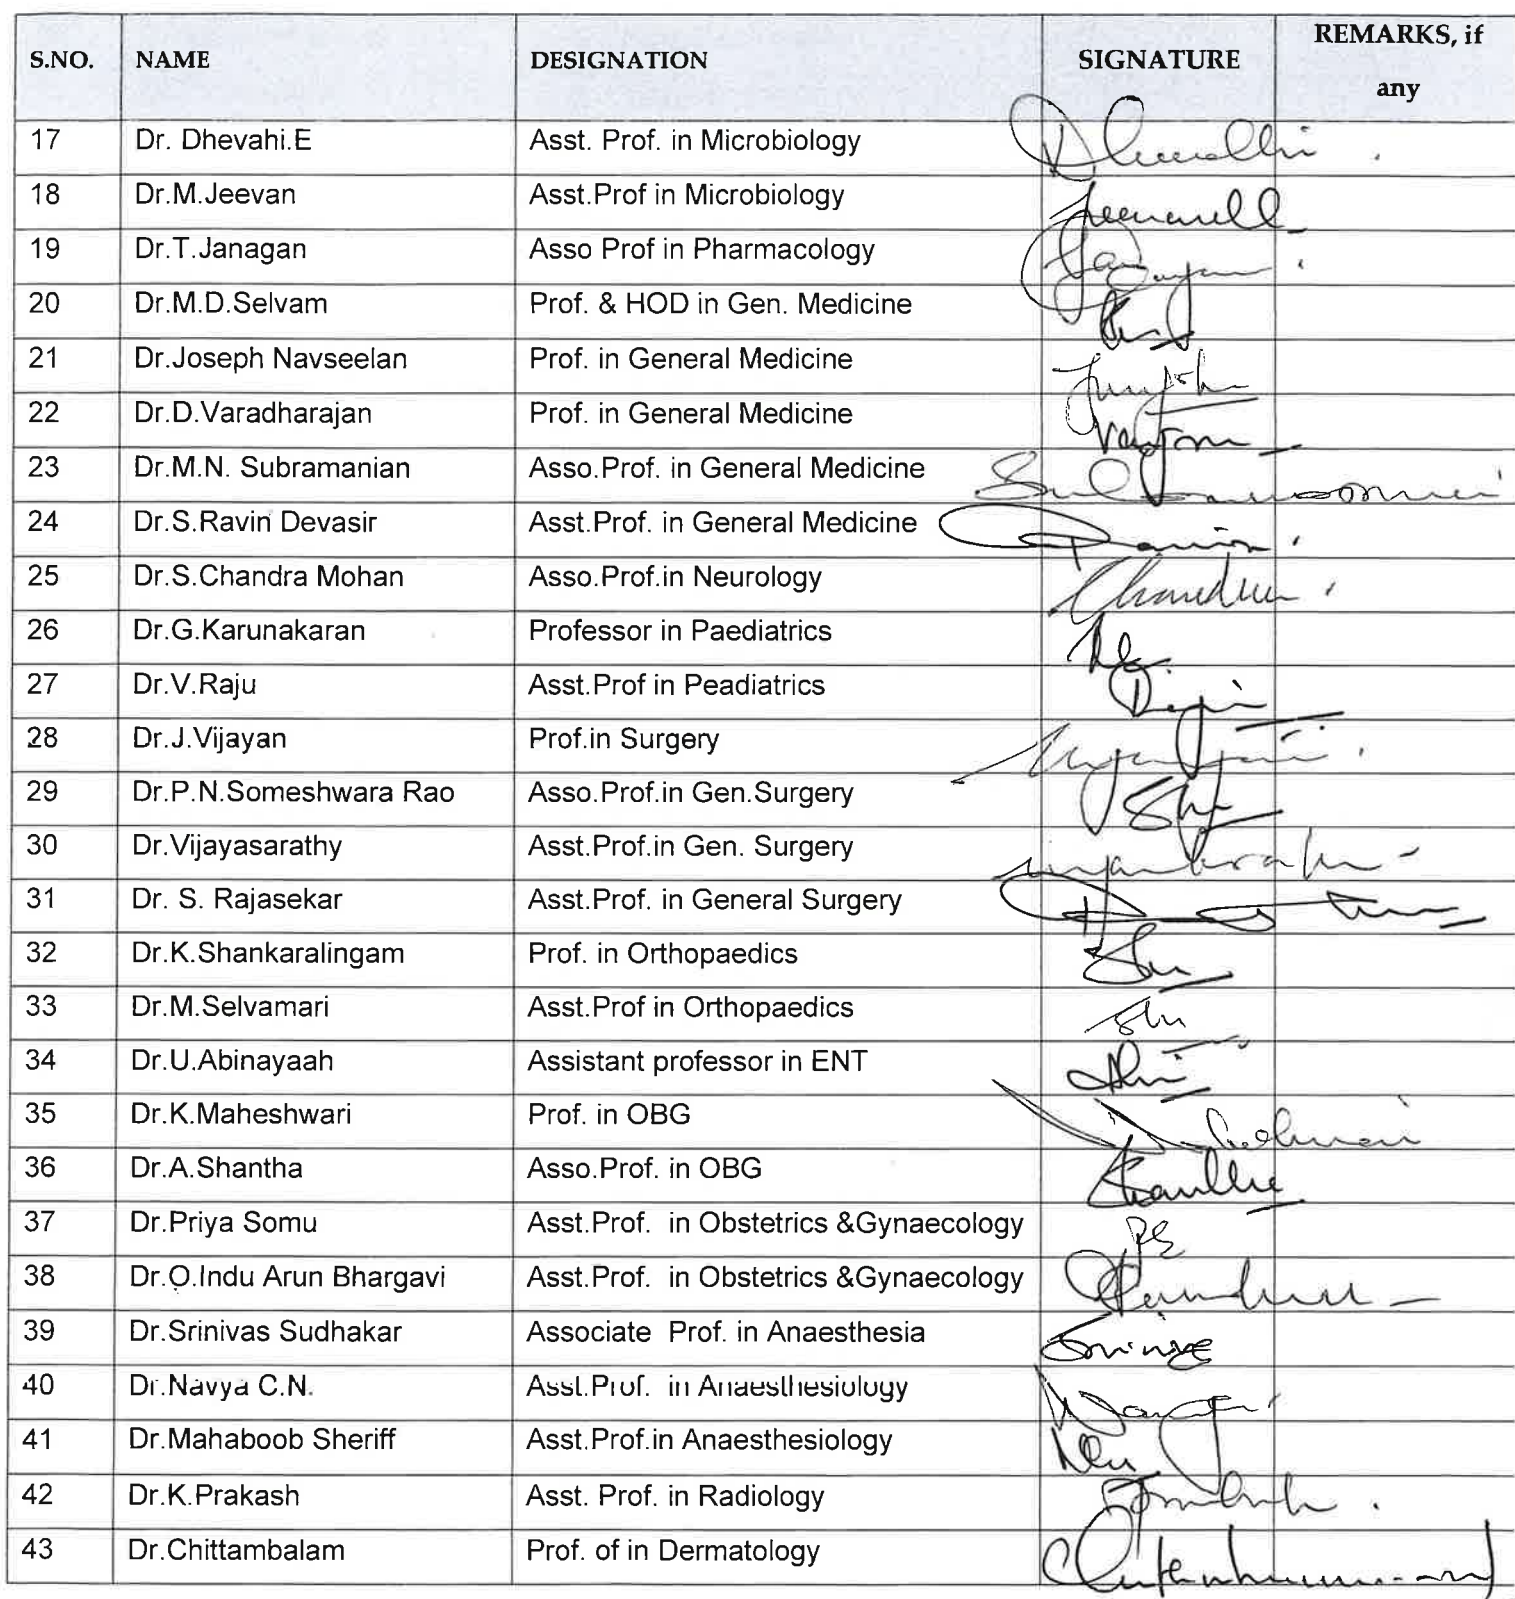 S.NO. NAME DESIGNATION SIGNATURE REMARKS, if any
17 Dr. Dhevahi.E Asst. Prof. in Microbiology
18 Dr.M.Jeevan Asst.Prof in Microbiology
19 Dr.T.Janagan Asso Prof in Pharmacology
20 Dr.M.D.Selvam Prof. & HOD in Gen. Medicine
21 Dr.Joseph Navseelan Prof. in General Medicine
22 Dr.D.Varadharajan Prof. in General Medicine
23 Dr.M.N. Subramanian Asso.Prof. in General Medicine
24 Dr.S.Ravin Devasir Asst.Prof. in General Medicine
25 Dr.S.Chandra Mohan Asso.Prof.in Neurology
26 Dr.G.Karunakaran Professor in Paediatrics
27 Dr.V.Raju Asst.Prof in Peadiatrics
28 Dr.J.Vijayan Prof.in Surgery
29 Dr.P.N.Someshwara Rao Asso.Prof.in Gen.Surgery
30 Dr.Vijayasarathy Asst.Prof.in Gen. Surgery
31 Dr. S. Rajasekar Asst.Prof. in General Surgery
32 Dr.K.Shankaralingam Prof. in Orthopaedics
33 Dr.M.Selvamari Asst.Prof in Orthopaedics
34 Dr.U.Abinayaah Assistant professor in ENT
35 Dr.K.Maheshwari Prof. in OBG
36 Dr.A.Shantha Asso.Prof. in OBG
37 Dr.Priya Somu Asst.Prof. in Obstetrics &Gynaecology
38 Dr.O.Indu Arun Bhargavi Asst.Prof. in Obstetrics &Gynaecology
39 Dr.Srinivas Sudhakar Associate Prof. in Anaesthesia
40 Dr.Navya C.N. Asst.Prof. in Anaesthesiology
41 Dr.Mahaboob Sheriff Asst.Prof.in Anaesthesiology
42 Dr.K.Prakash Asst. Prof. in Radiology
43 Dr.Chittambalam Prof. of in Dermatology